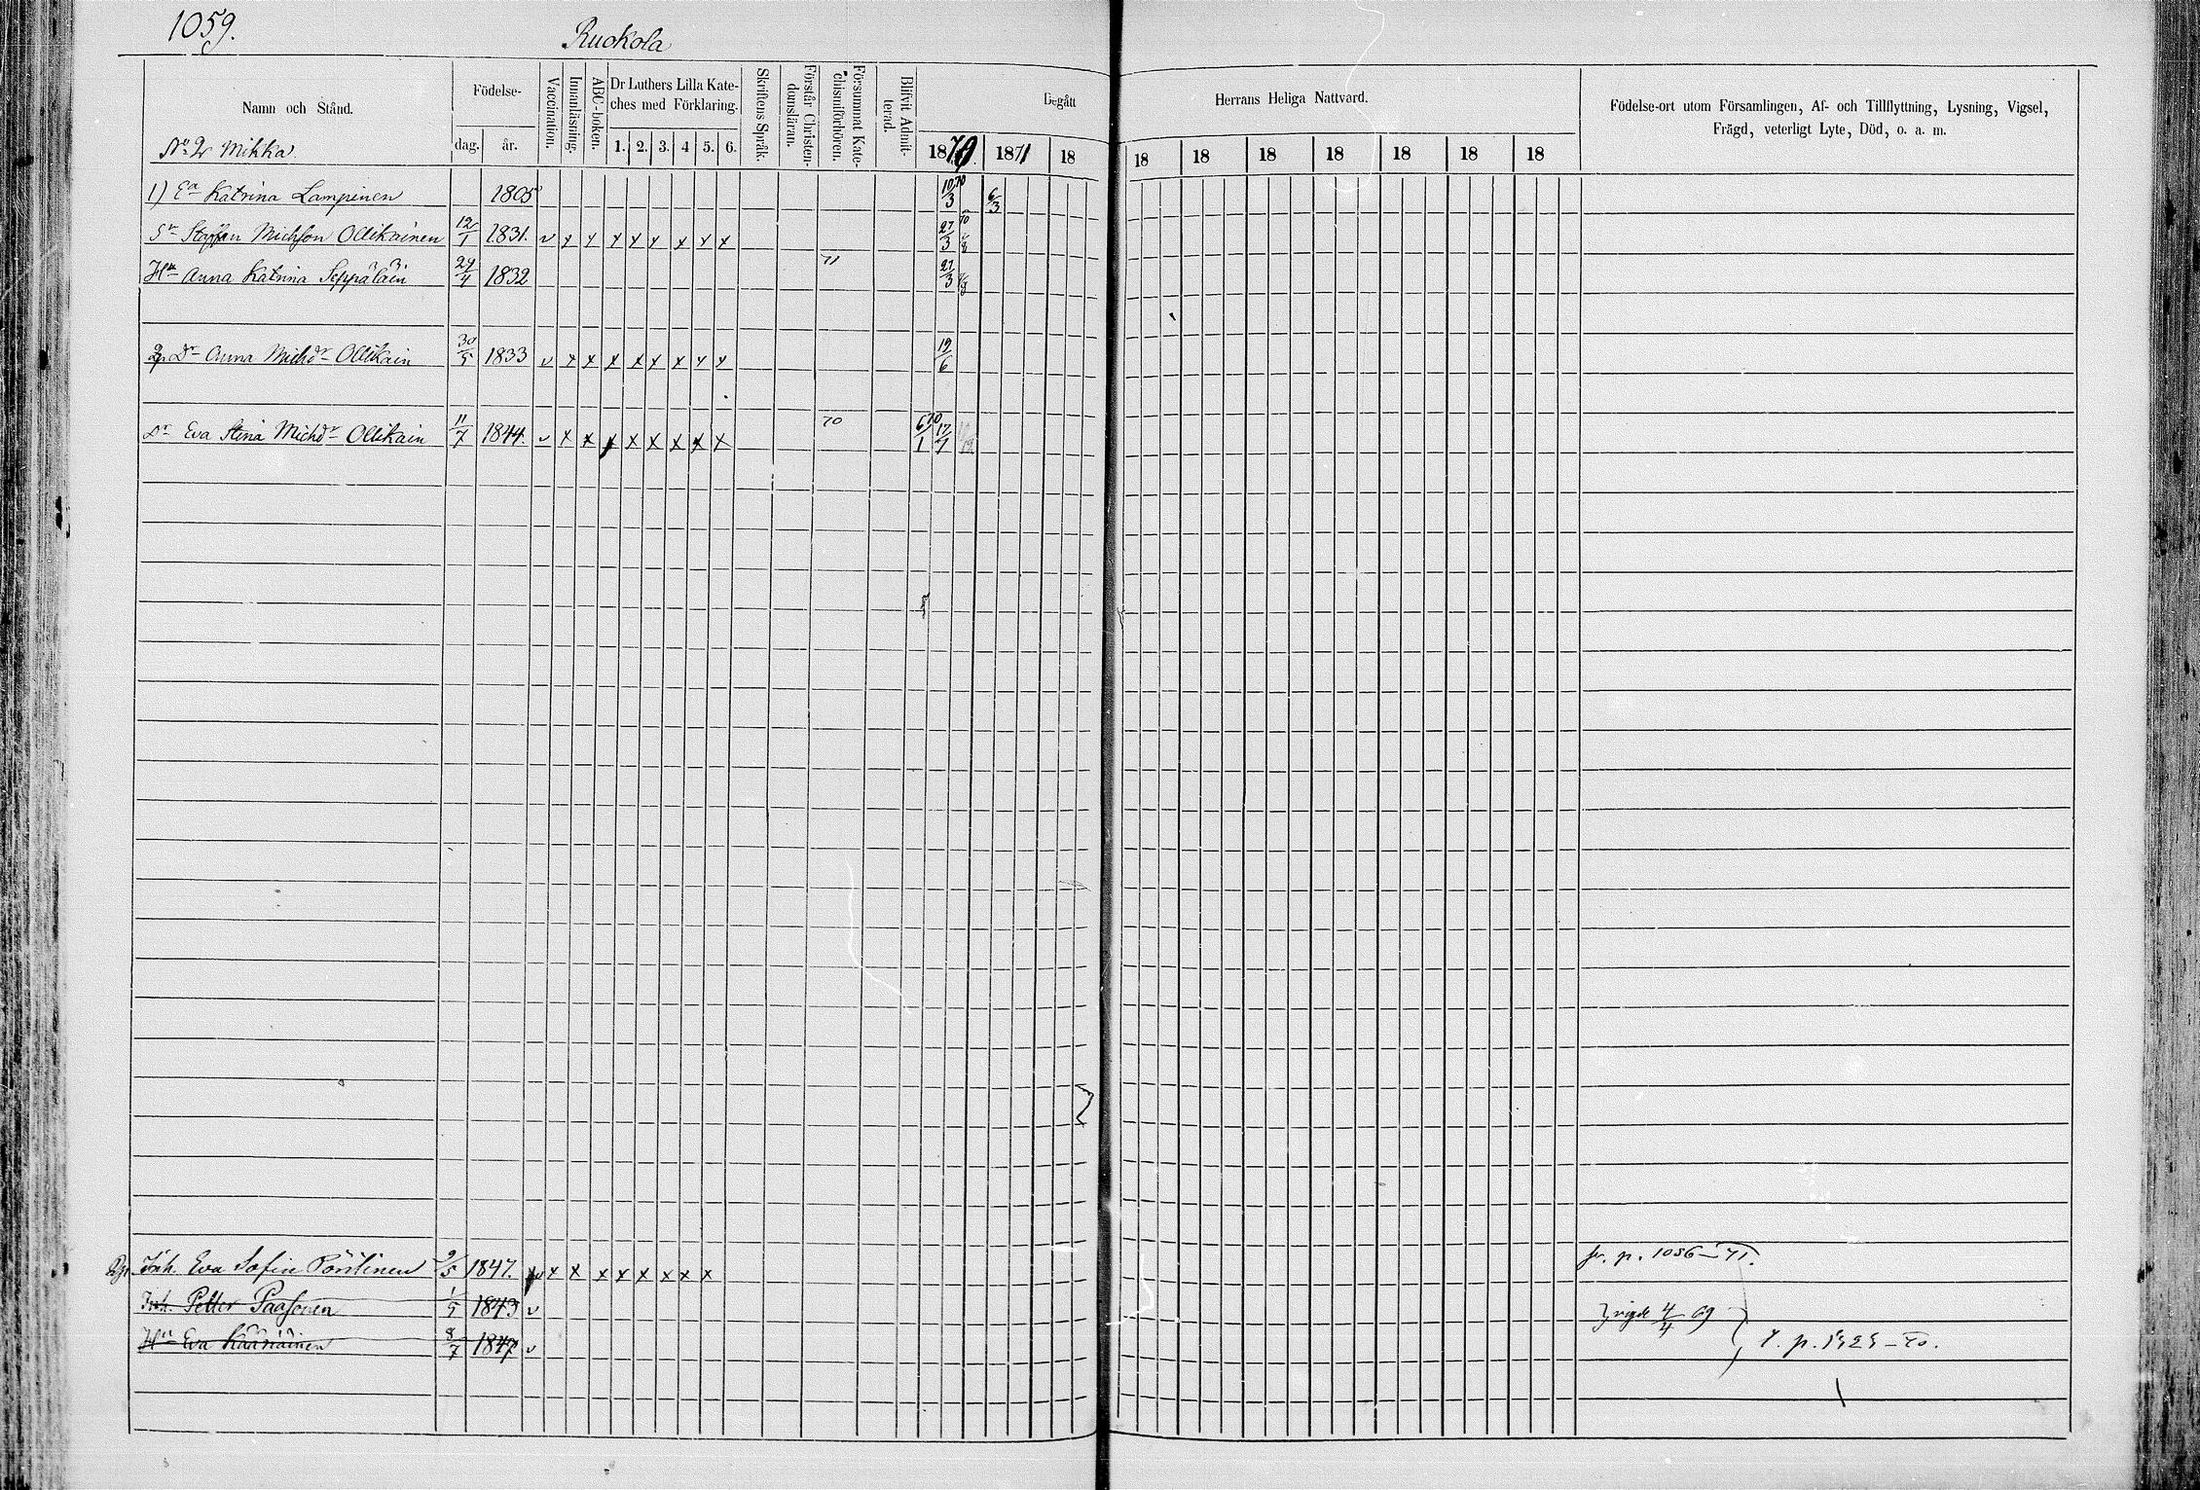 1059.
Ruokola
Namn och Stånd.
Födelse-
dag.
år.
Vaccination.
Innanläsning.
ABC-boken.
Dr Luthers Lilla Kate-
ches med Förklaring.
1. 2. 3. 4 5. 6.
Skriftens Språk.
Förstår Christen-
domsläran.
Försummat Kate-
chismiförhören.
Blifvit Admit-
terad.
Begått
Herrans Heliga Nattvard.
1870. 1871 18 18 18 18 18 18 18 18
Födelse-ort utom Församlingen, Af- och Tillflyttning, Lysning, Vigsel,
Frägd, veterligt Lyte, Död, o. a. m.
No 2 Mikka
1) Ea Katrina Lampinen 1805 10/3 70 6/3
Sn Staffan Michson Ollikainen 12/1 1831. v x x x x x x x x 27/3
Hu Anna Katrina Seppäläin 29/4 1832 71 27/3
Dr Anna Michdr Ollikain 30/5 1833 v x x x x x x x x 19/6
Dr Eva Stina Michdr Ollikain 11/7 1844. v x x x x x x x x 70 6/1 17/7
Inh. Eva Sofia Pöntinen 2/5 1847. x x x x x x x x fr. p. 1056-71.
Inh. Petter Paasonen 1/5 1843 v vigde 4/4 69
Hu Eva Kääriäinen 8/7 1847 v